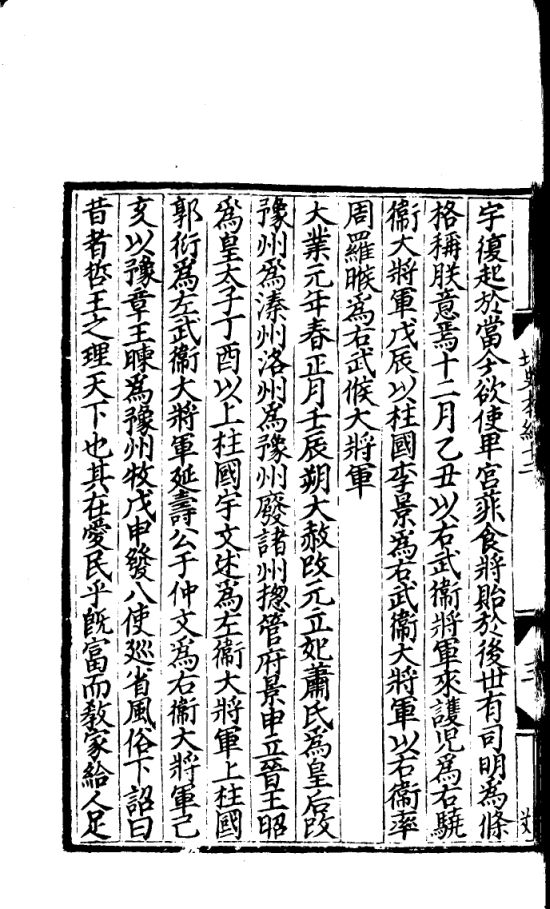 宇復起於當今欲使卑宮菲食將貽於後世有司明為條
格稱朕意焉十二月乙丑以右武衞將軍來護兒為右驍
衞大將軍戊辰以柱國李景為右武衞大將軍以右衞率
周羅睺為右武候大將軍
大業元年春正月壬辰朔大赦改元立妃蕭氏為皇后改
豫州為溱州洛州為豫州廢諸州揔管府景申立晉王昭
為皇太子丁酉以上柱國宇文述為左衞大將軍上柱國
郭衍為左武衞大將軍延壽公于仲文為右衞大將軍己
亥以豫章王暕為豫州牧戊申發八使廵省風俗下詔曰
昔者哲王之理天下也其在愛民乎旣富而敎家給人足